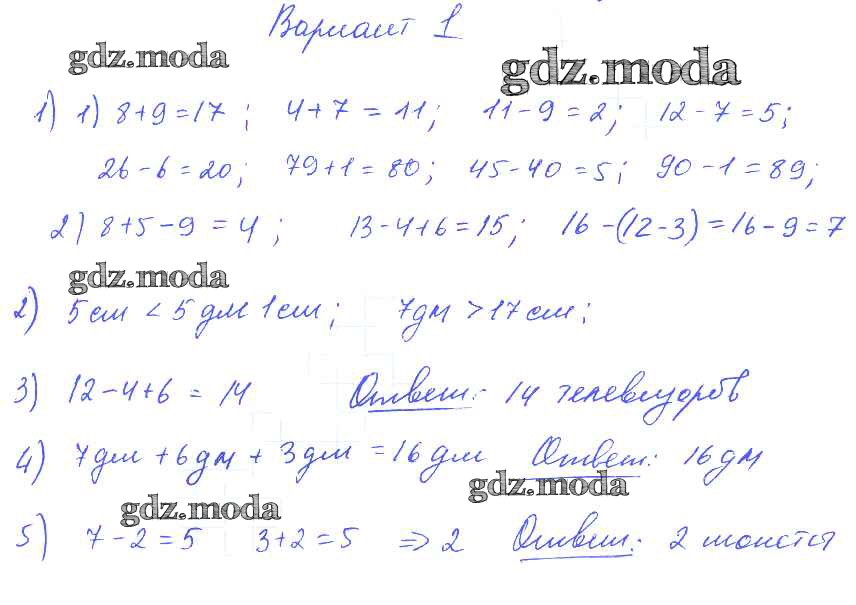 Вариант 1
gdz.moda gdz.moda
1) 1) 8+9=17; 4+7=11; 11-9=2; 12-7=5;
26-6=20; 79+1=80; 45-40=5; 90-1=89;
2) 8+5-9=4; 13-4+6=15; 16-(12-3)=16-9=7
gdz.moda
2) 5см < 5дм 1см; 7дм > 17см;
3) 12-4+6=14 Ответ: 14 телевизоров
4) 7дм+6дм+3дм=16дм Ответ: 16дм
gdz.moda gdz.moda
5) 7-2=5 3+2=5 => 2 Ответ: 2 монеты